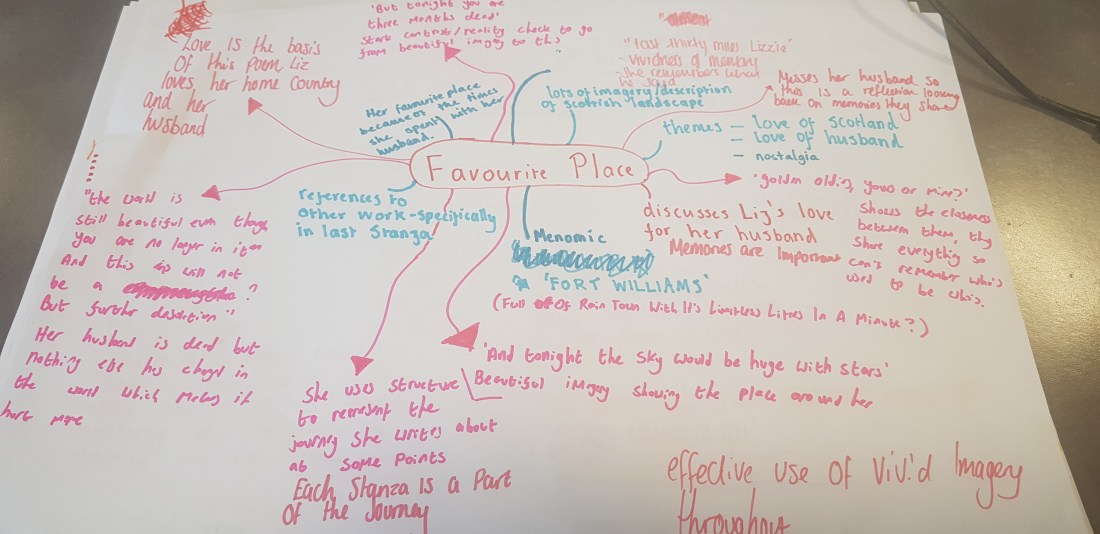 'But tonight you are
three months dead'
Stark contrast/reality check to go
from beautiful imagery to this
Love Is the basis
Of this Poem Liz
loves her home Country
and her
husband
Her favourite place
because of the times
she spent with her
husband.
"last thirty miles Lizzie"
- vividness of memory
- she remembers what
he said
lots of imagery/description
of scottish landscape
Misses her husband so
this is a reflexion looking
back on memories they share
themes - love of scotland
- love of husband
- nostalgia
Favourite Place
'goldm oldig, yours or mine?'
Shows the closeness
between them, thy
share everything so
can't remember who's
used to be who's.
discusses Liz's love
for her husband
Memories are Important
references to
other work-specifically
in last Stanza
Menomic
'FORT WILLIAMS'
(Full Of Rain Town With It's Limitless Litres In A Minute?)
"the world is
still beautiful even though
you are no longer in it"
And this is will not
be a ?
But further desolation"
Her husband is dead but
nothing else has changed in
the world which makes it
hurt more
'And tonight the sky would be huge with stars'
Beautiful imagery showing the place around her
She uses structure
to represent the
journey she writes about
at some points
Each Stanza Is a Part
Of the Journey
effective use of Viv'd Imagery
throughout